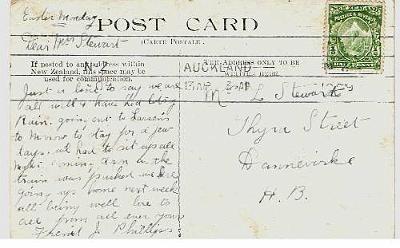 Easter Monday
POST CARD
(CARTE POSTALE.)
Dear Mrs Stewart
If posted to an address within
New Zealand, this space may be
used for communication.
THE ADDRESS ONLY TO BE
WRITTEN HERE.
N.Z.
AUCKLAND
13 AP
Just a line to say we are
all well &
have had
Rain. going out to
to stay for a few
days. we had to sit up all
night coming down in the
train was packed we are
going up home next week
all being well love to
all from all ever your
Friend J. Phillips
M L Stewart
Thyra Street
Dannevirke
H. B.